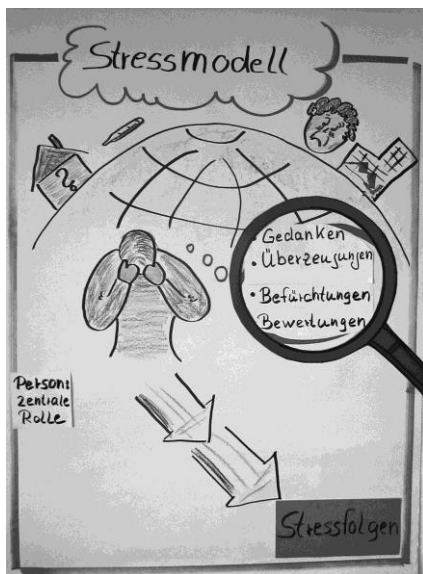 Stressmodell
• Gedanken
• Überzeugungen
• Befürchtungen
Bewertungen
Person:
zentrale
Rolle
Stressfolgen